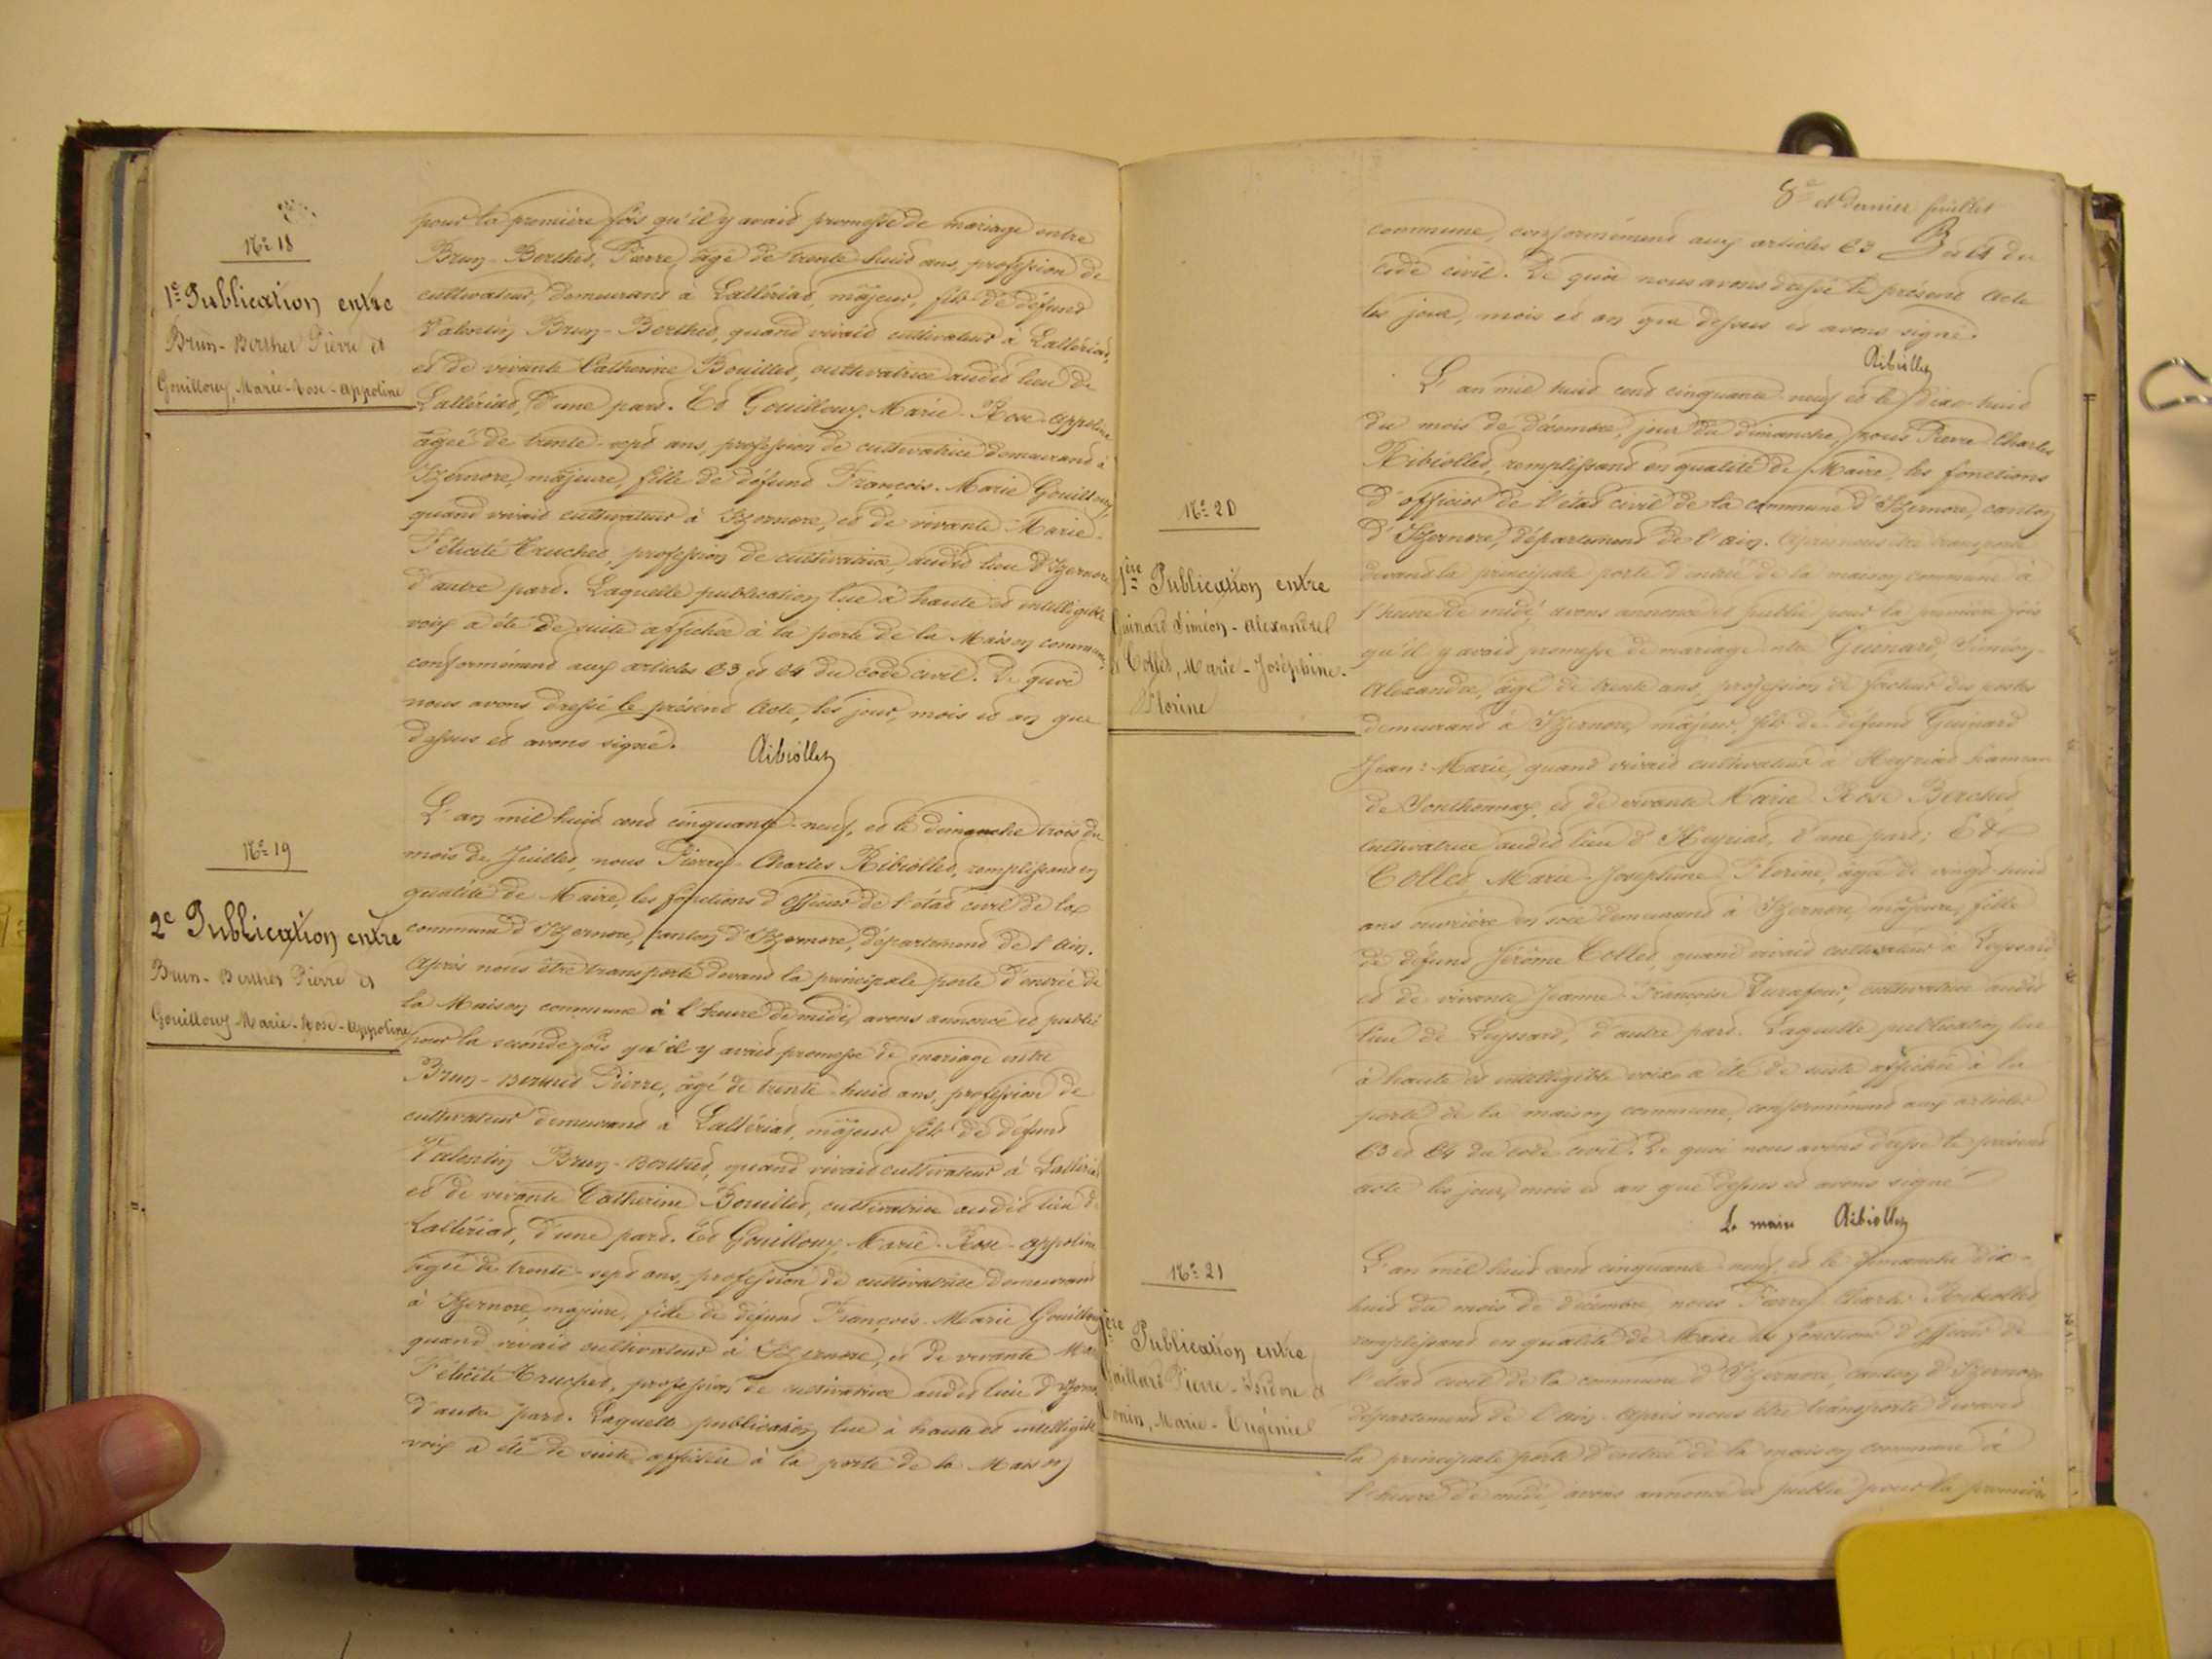 Nº 18
1e Publication entre
Brun-Berthet Pierre et
Gouilloux, Marie-Rose-Appoline
pour la première fois qu'il y avait promesse de mariage entre
Brun-Berthet, Pierre, âgé de trente huit ans, profession de
cultivateur, demeurant à Lallériat, majeur, fils de défunt
Valentin Brun-Berthet, quand vivait cultivateur à Lallériat,
et de vivante Catherine Bouillet, cultivatrice audit lieu de
Lallériat, d'une part. Et Gouilloux, Marie-Rose-Appoline
âgée de trente-sept ans, profession de cultivatrice demeurant à
Izernore, majeure, fille de défunt François-Marie Gouilloux
quand vivait cultivateur à Izernore, et de vivante Marie-
Félicité Truchet, profession de cultivatrice, audit lieu d'Izernore
d'autre part. Laquelle publication lue à haute et intelligible
voix a été de suite affichée à la porte de la Maison commune,
conformément aux articles 63 et 64 du code civil. De quoi
nous avons dressé le présent Acte, les jour, mois et an que
dessus et avons signé.
Ribiollet
Nº 19
2e Publication entre
Brun-Berthet Pierre et
Gouilloux Marie-Rose-Appoline
L'an mil huit cent cinquante-neuf, et le dimanche trois du
mois de Juillet, nous Pierre-Charles Ribiollet, remplissant en
qualité de Maire, les fonctions d'officier de l'état civil de la
commune d'Izernore, canton d'Izernore, département de l'Ain.
Après nous être transporté devant la principale porte d'entrée de
la Maison commune à l'heure de midi, avons annoncé et publié
pour la seconde fois qu'il y avait promesse de mariage entre
Brun-Berthet Pierre, âgé de trente-huit ans, profession de
cultivateur demeurant à Lallériat, majeur fils de défunt
Valentin Brun-Berthet, quand vivait cultivateur à Lallériat
et de vivante Catherine Bouillet, cultivatrice audit lieu de
Lallériat, d'une part. Et Gouilloux, Marie-Rose-Appoline
âgée de trente-sept ans, profession de cultivatrice demeurant
à Izernore, majeure, fille de défunt François-Marie Gouilloux
quand vivait cultivateur à Izernore, et de vivante Marie
Félicité Truchet, profession de cultivatrice audit lieu d'Izernore
d'autre part. Laquelle publication lue à haute et intelligible
voix a été de suite affichée à la porte de la Maison
8e et dernier feuillet
commune, conformément aux articles 63 et 64 du
code civil. De quoi nous avons dressé le présent acte
les jour, mois et an que dessus et avons signé.
Ribiollet
Nº 20
1ère Publication entre
Guinard Siméon-Alexandre
et Collet, Marie-Joséphine-
Florine
L'an mil huit cent cinquante-neuf et le dixe-huit
du mois de décembre, jour du dimanche, nous Pierre Charles
Ribiollet, remplissant en qualité de Maire, les fonctions
d'officier de l'état civil de la commune d'Izernore, canton
d'Izernore, département de l'Ain. Après nous être transporté
devant la principale porte d'entrée de la maison commune à
l'heure de midi, avons annoncé et publié pour la première fois
qu'il y avait promesse de mariage entre Guinard, Siméon-
Alexandre, âgé de trente ans, profession de facteur des postes
demeurant à Izernore, majeur, fils de défunt Guinard
Jean-Marie, quand vivait cultivateur à Heyriat hameau
de Sonthonnax, et de vivante Marie Rose Berchet
cultivatrice audit lieu d'Heyriat, d'une part; Et
Collet Marie-Joséphine Florine, âgée de vingt-huit
ans ouvrière en soie demeurant à Izernore, majeure, fille
de défunt Jérôme Collet, quand vivait cultivateur à Leyssard
et de vivante Jeanne Françoise Durafour, cultivatrice audit
lieu de Leyssard, d'autre part. Laquelle publication lue
à haute et intelligible voix a été de suite affichée à la
porte de la maison commune, conformément aux articles
63 et 64 du code civil. De quoi nous avons dressé le présent
acte les jour, mois et an que dessus et avons signé
Le maire Ribiollet
Nº 21
1ère Publication entre
Gaillard Pierre-Isidore et
Monin, Marie-Eugénie
L'an mil huit cent cinquante-neuf, et le dimanche dix-
huit du mois de décembre, nous Pierre Charles Ribiollet
remplissant en qualité de Maire les fonctions d'officier de
l'état civil de la commune d'Izernore, canton d'Izernore
département de l'Ain. Après nous être transporté devant
la principale porte d'entrée de la maison commune à
l'heure de midi, avons annoncé et publié pour la première